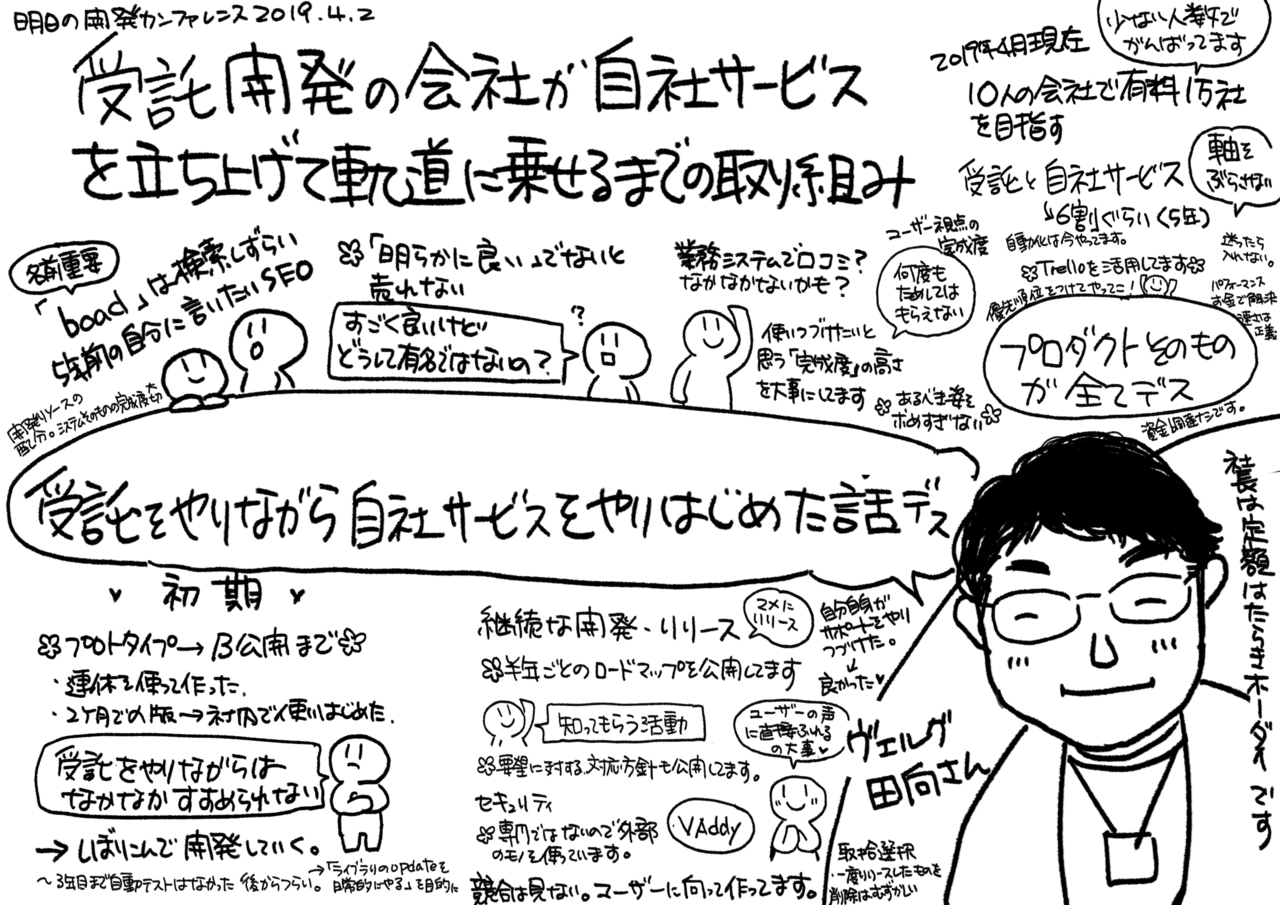 明日の開発カンファレンス2019.4.2
受託開発の会社が自社サービス
を立ち上げて軌道に乗せるまでの取り組み
少ない人数で
がんばってます
2019年4月現在
10人の会社で有料1万社
を目指す
軸を
ぶらさない
受託と自社サービス
↘6割ぐらい(5年)
自動化は今やってます。
迷ったら
入れない。
Trelloを活用してます
優先順位をつけてやってこ!
パフォーマンス
お金で解決
速さは
正義
プロダクトそのもの
が全てデス
資金調達ナシです。
名前重要
「boad」は検索しずらい
5年前の自分に言いたいSEO
「明らかに良い」でないと
売れない
すごく良いけど
どうして有名ではないの?
?
業務システムで口コミ?
なかなかないかも?
ユーザー視点の
完成度
何度も
ためしては
もらえない
使いつづけたいと
思う「完成度」の高さ
を大事にしてます
あるべき姿を
求めすぎない
開発リソースの
配分。システムそのものの完成度大切
受託をやりながら自社サービスをやりはじめた話デス
社長は定額はたらきホーダイです
初期
プロトタイプ→β公開まで
・連休を使って作った.
・2ヶ月でα版→社内で使いはじめた.
受託をやりながらは
なかなかすすめられない
→しばりこんで開発していく。
〜3年目まで自動テストはなかった 後からつらい。
→「ライブラリのupdateを
日常的にやる」を目的に
継続な開発・リリース
マメに
リリース
半年ごとのロードマップを公開してます
知ってもらう活動
要望に対する対応方針も公開してます。
セキュリティ
専門ではないので外部
のモノを使っています。
VAddy
競合は見ない。ユーザーに向って作ってます。
自分自身が
サポートをやり
つづけた。
↓
良かった
ユーザーの声
に直接ふれる
の大事
ヴェルク
田向さん
取捨選択
・一度リリースしたものを
削除はむずかしい